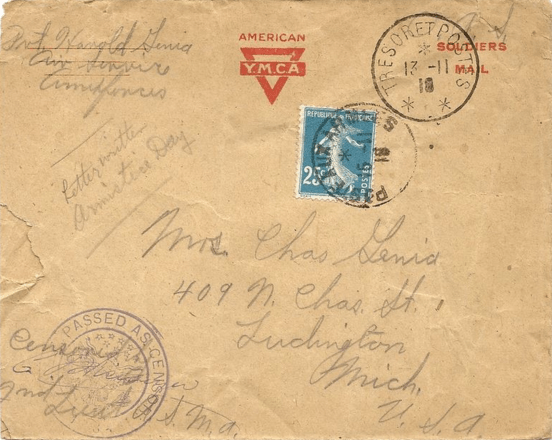 Pvt. Harold Genia
Air Service
Amer forces
AMERICAN
Y.M.C.A
SOLDIERS
MAIL
TRESOR ET POSTES
13 -11
18
Letter written
Armistice Day
REPUBLIQUE FRANÇAISE
25
POSTES
Mrs. Chas Genia
409 N. Chas. St.
Ludington
Mich.
U.S.A
PASSED AS CENSORED
Censored
2nd Lieut. A.S.M.A.